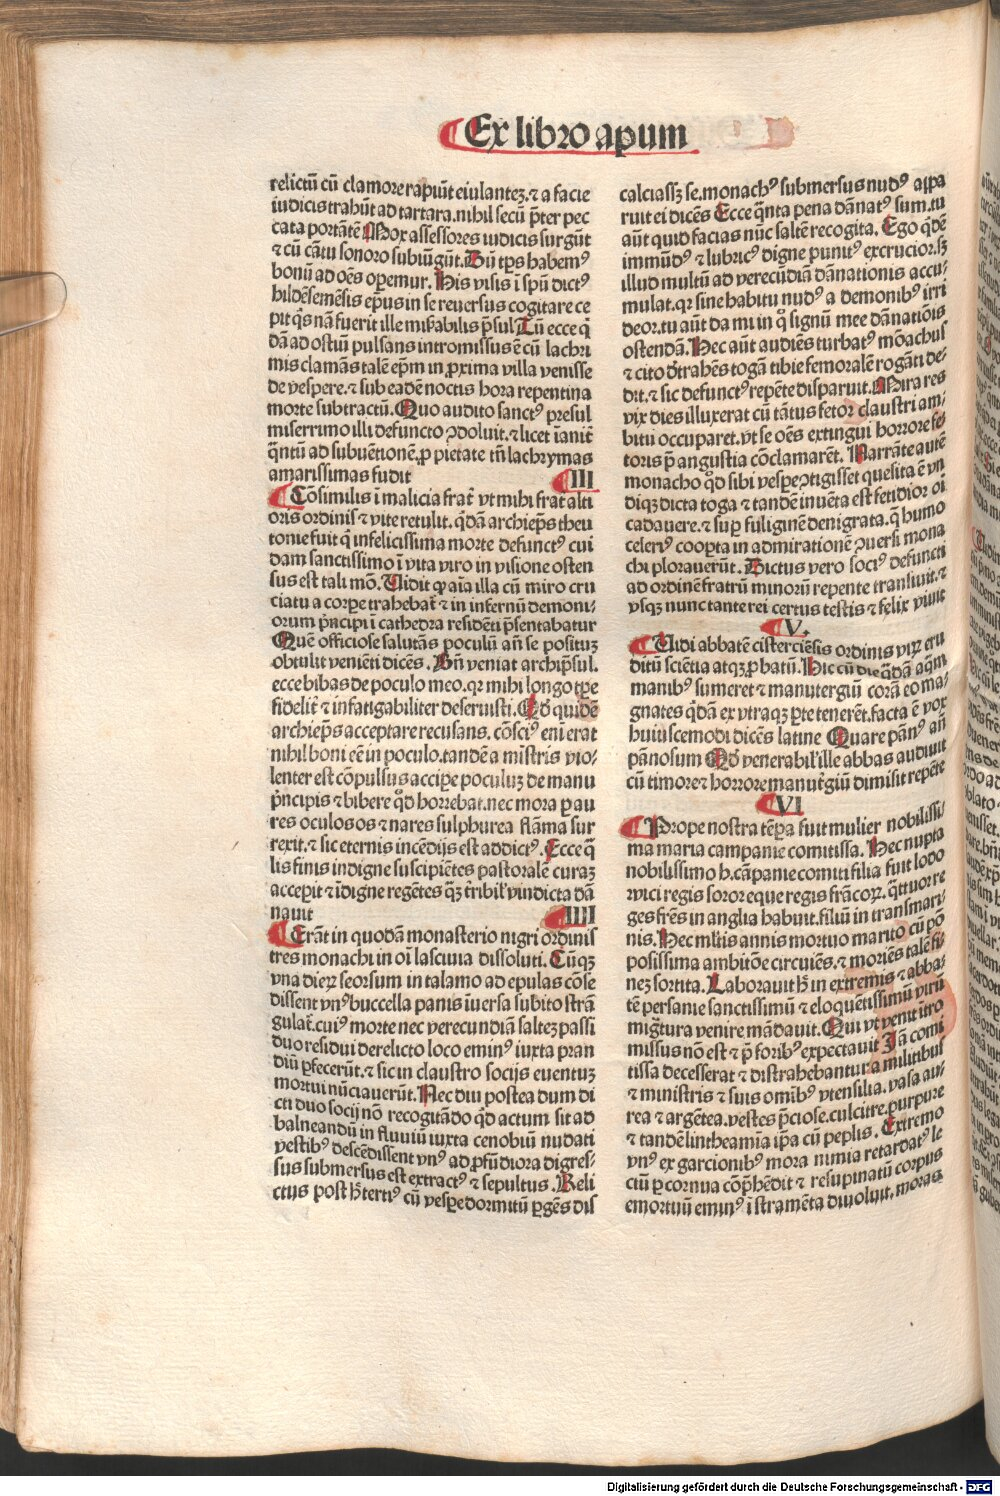 Ex libro apum
relictū cū clamore rapiūt eiulantez.⁊ a facie
iudicis trahūt ad tartara.nihil secū p̄ter pec
cata portātē Mox assessores iudicis surgūt
⁊ cū cātu sonoro subiūgūt.Dū tp̄s habemꝰ
bonū ad oēs oꝑemur. His visis ī sp̄u dictꝰ
hildēsemēsis ep̄us in se reuersus cogitare ce
pit q̄s nā fuerit ille mis̄abilis p̄sul Tū ecce q̄
dā ad ostiū pulsans intromissus ē cū lachri
mis clamās talē ep̄m in ꝓxima villa venisse
de vespere.⁊ sub eadē noctis hora repentina
morte subtractū. Quo audito sanctꝰ presul
miserrimo illi defuncto ꝯdoluit.⁊ licet īanit̄
q̄ntū ad subuētionē.ꝓ pietate tn̄ lachrymas
amarissimas fudit
III
Cōsimilis ī malicia frat̄ vt mihi frat̄ alti
oris ordinis ⁊ vite retulit. q̄dā archiep̄s theu
tonie fuit q̄ infelicissima morte defunctꝰ cui
dam sanctissimo ī vita viro in visione osten
sus est tali mō. Uidit ꝙ aīa illa cū miro cru
ciatu a corꝑe trahebat̄ ⁊ in infernū demoni⸗
orum p̄ncipi ī cathedra residēti p̄sentabatur
Quē officiose salutās poculū an̄ se posituz
obtulit veniēti dicēs . Bn̄ veniat archip̄sul.
ecce bibas de poculo meo.qꝛ mihi longo tꝑe
fidelit̄ ⁊ infatigabiliter deseruisti.Qd̄ quidē
archiep̄s acceptare recusans. cōsciꝰ eni erat
nihil boni eē in poculo.tandē a mistris vio⸗
lenter est cōpulsus accipe poculuz de manu
p̄ncipis ⁊ bibere qd̄ horrebat.nec mora ꝑ au
res oculos os ⁊ nares sulphurea flāma sur
rexit.⁊ sic eternis incēdijs est addictꝰ. Ecce q̄
lis finis indigne suscipiētes pastoralē curaz
acceꝑit ⁊ īdigne regētes qz̄ tribil̄ vindicta dā
nauit
IIII
Erāt in quodā monasterio nigri ordinis
tres monachi in oī lasciuia dissoluti. Cūqz
vna dierꝝ seorsum in talamo ad epulas cōse
dissent vnꝰ buccella panis īuersa subito strā
gulat̄.cuiꝰ morte nec verecundiā saltez passi
duo residui derelicto loco eminꝰ iuxta pran
diū ꝑfecerūt.⁊ sic in claustro socijs euentuz
mortui nūciauerūt. Nec diu postea dum di
cti duo socij nō recogitādo qd̄ actum sit ad
balneandū in fluuiū iuxta cenobiū nudati
vestibꝰ descēdissent vnꝰ ad ꝓfūdiora digres⸗
sus submersus est extractꝰ ⁊ sepultus . Reli
ctus post h̄ tertiꝰ cū vesꝑe dormitū ꝑgēs dis
calciassz se.monachꝰ submersus nudꝰ appa
ruit ei dicēs Ecce q̄nta pena dānatꝰ sum.tu
aūt quid facias nūc saltē recogita. Ego q̄dē
immūdꝰ ⁊ lubricꝰ digne punit̄ excrucior.sz
illud multū ad verecūdiā dānationis accu⸗
mulat.qꝛ sine habitu nudꝰ a demonibꝰ irri
deor.tu aūt da mi in q̊ signū mee dānatiōis
ostendā. Hec aūt audiēs turbatꝰ mōachus
⁊ cito dtrahēs togā tibie femoralē rogāti de⸗
dit.⁊ sic defunctꝰ repēte disparuit. Mira res
vix dies illuxerat cū tātus fetor claustri am⸗
bitū occuparet.vt se oēs extingui horrore fe⸗
toris p̄ angustia cōclamarēt. Narrāte autē
monacho qd̄ sibi vesꝑe ꝯtigisset quesita ē vn
diqz dicta toga ⁊ tandē inuēta est fetidior oī
cadauere.⁊ suꝑ fuliginē denigrata.q̄ humo
celeriꝰ cooꝑta in admirationē ꝯuersi mona
chi plorauerūt. Dictus vero sociꝰ defuncti
ad ordinē fratrū minorū repente transiuit.⁊
vsqz nunc tante rei certus testis ⁊ felix viuit
V.
Uidi abbatē cisterciēsis ordinis virꝝ eru
ditū sciētia atqz ꝓbatū. Hic cū die q̄dā aq̄m
manibꝰ sumeret ⁊ manutergiū corā eo ma⸗
gnates q̄dā ex vtraqz ꝑte tenerēt.facta ē vox
huiuscemodi dicēs latine Quare pānꝰ an̄
pānosum Qd̄ venerabil̄ ille abbas audiuit
cū timore ⁊ horrore manut̄giū dimisit repēte
VI
Prope nostra tēꝑa fuit mulier nobilissi⸗
ma maria campanie comitissa. Hec nupta
nobilissimo h.cāpanie comiti filia fuit lodo
wici regis soror eque regis frācoꝝ.q̄ttuor re
ges frēs in anglia habuit.filiū in transmari⸗
nis.Hec ml̄tis annis mortuo marito cū pō
posissima ambitiōe circuiēs.⁊ moriēs talē fi⸗
nez sortita. Laborauit h̄ in extremis ⁊ abba⸗
tē persanie sanctissimū ⁊ eloquētissimū virū
mig̃tura venire mādauit. Qui vt venit ītro
missus nō est ⁊ p̄ foribꝰ expectauit Jā comi
tissa decesserat ⁊ distrahebantur a militibus
⁊ ministris ⁊ suis omībꝰ vtensilia. vasa au⸗
rea ⁊ argētea.vestes p̄ciose.culcitre.purpure
⁊ tandē lintheamīa ip̄a cū peplis. Extremo
vnꝰ ex garcionibꝰ mora nimia retardatꝰ le
ctū ꝑ cornua cōp̄hēdit ⁊ resupinatū corpus
emortuū eminꝰ ī stramēta diuoluit. moras
Digitalisierung gefördert durch die Deutsche Forschungsgemeinschaft - DFG